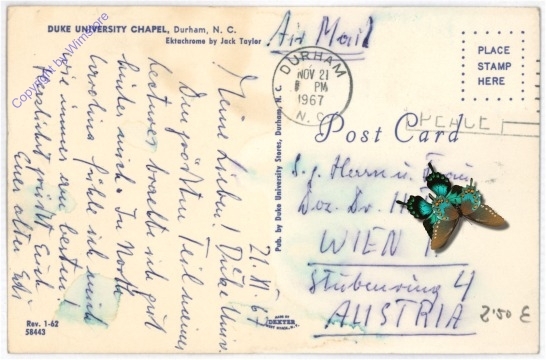 DUKE UNIVERSITY CHAPEL, Durham, N. C.
Ektachrome by Jack Taylor
Copyright by Wimstore
21. XI. 67
Meine Lieben! Duke Univ.
Den größten Teil meiner
Lectures brachte ich gut
hinter mich. In North
Carolina fühle ich mich
wie immer am besten!
grüßt Euch
Euer alter
Rev. 1-62
58443
Pub. by Duke University Stores, Durham, N. C.
MADE BY
DEXTER
WEST NYACK, N.Y.
Air Mail
DURHAM
NOV 21
PM
1967
N. C.
PLACE
STAMP
HERE
Post Card
S. g. Herrn u.
Doz. Dr. H
WIEN
Stubenring 4
AUSTRIA
2.50 €